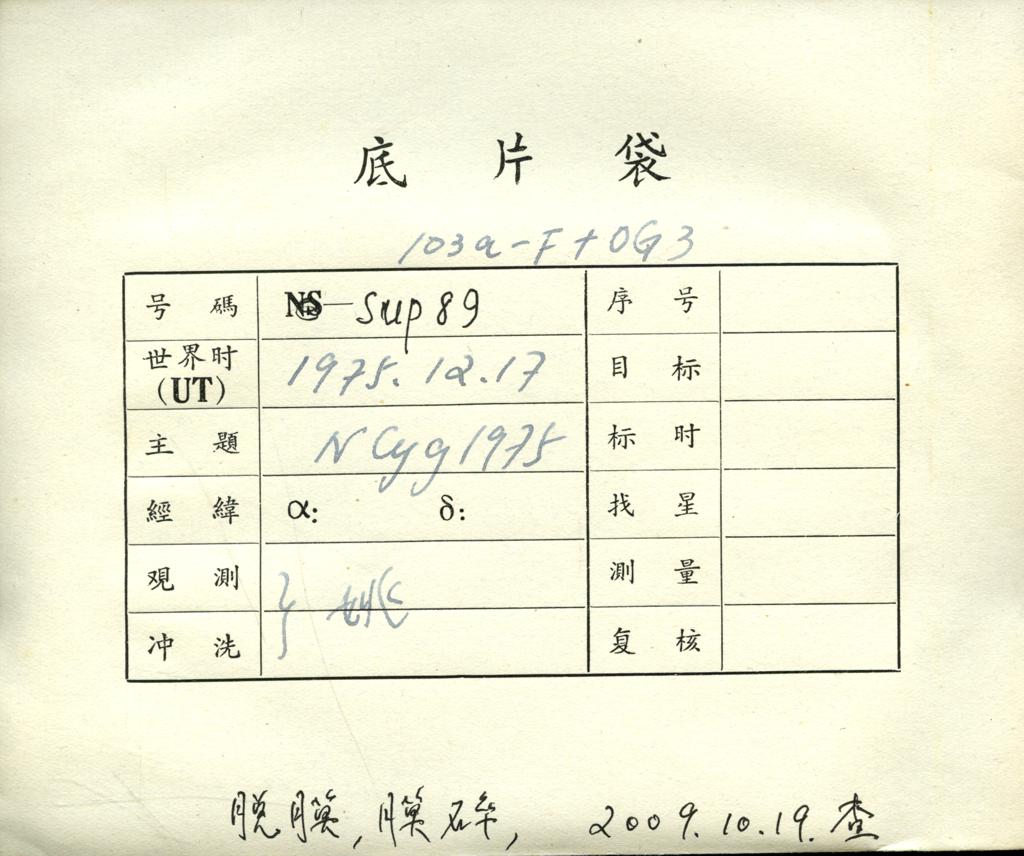 底片袋
103a-F+OG3
号碼 NS—Sup89 序号
世界时(UT) 1975.12.17 目标
主题 N Cyg 1975 标时
經緯 α: δ: 找星
观測 } 姚 測量
冲洗 复核
脱膜,膜碎, 2009.10.19.查